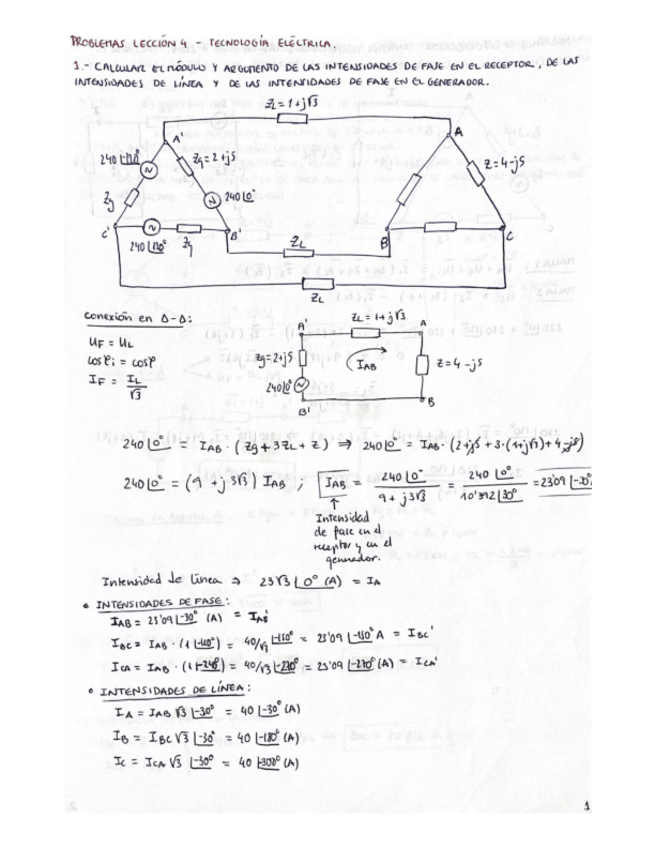 PROBLEMAS LECCIÓN 4 - TECNOLOGÍA ELÉCTRICA.
1.- CALCULAR EL MÓDULO Y ARGUMENTO DE LAS INTENSIDADES DE FASE EN EL RECEPTOR, DE LAS
INTENSIDADES DE LÍNEA Y DE LAS INTENSIDADES DE FASE EN EL GENERADOR.
ZL = 1+j√3
A'
A
240
Zg = 2+j5
Z=4-j5
Zg
240 |0°
C'
B'
B
C
240
Zg
ZL
ZL
Conexión en Δ-Δ:
UF = UL
cosφi = cosφ
IF = IL/√3
A'
ZL = 1+j√3
A
Zg=2+j5
IAB
Z=4-j5
240|0°
B'
B
240|0° = IAB · (Zg+3ZL+Z) ⇒ 240|0° = IAB · (2+j5 + 3·(1+j√3)+4-j5)
240|0° = (9+j3√3) IAB ; IAB = 240|0° / 9+j3√3 = 240|0° / 10'392|30° = 23'09|-30°
↑
Intensidad
de fase en el
receptor y en el
generador.
Intensidad de línea ⇒ 23√3 |0° (A) = IA
• INTENSIDADES DE FASE:
IAB = 23'09|-30° (A) = IAB'
IBC = IAB · = 40/√3 |-150° = 23'09 |-150° A = IBC'
ICA = IAB · = 40/√3 |-270° = 23'09 |-270° (A) = ICA'
• INTENSIDADES DE LÍNEA:
IA = IAB √3 |-30° = 40 |-30° (A)
IB = IBC √3 |-30° = 40 |-180° (A)
IC = ICA √3 |-30° = 40 |-300° (A)
1